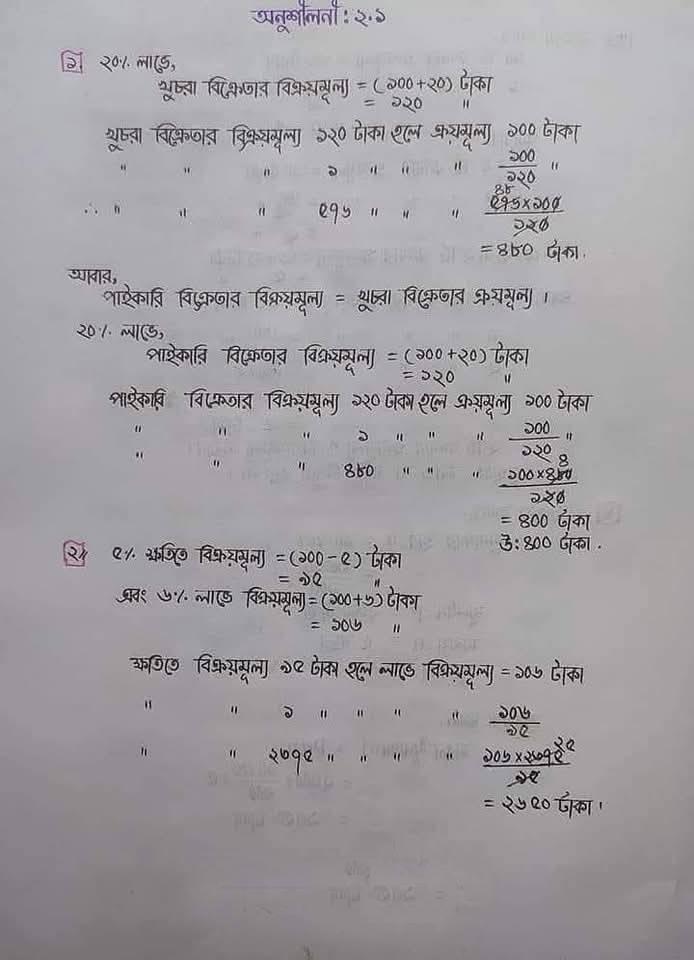 অনুশীলনী: ২.১
১. ২০% লাভে,
খুচরা বিক্রেতার বিক্রয়মূল্য = (১০০+২০) টাকা
= ১২০ "
খুচরা বিক্রেতার বিক্রয়মূল্য ১২০ টাকা হলে ক্রয়মূল্য ১০০ টাকা
" " " ১ " " " ১০০/১২০ "
∴ " " " ৫৭৬ " " " ৫৭৬×১০০/১২০ ৪৮
= ৪৮০ টাকা.
আবার,
পাইকারি বিক্রেতার বিক্রয়মূল্য = খুচরা বিক্রেতার ক্রয়মূল্য।
২০% লাভে,
পাইকারি বিক্রেতার বিক্রয়মূল্য = (১০০+২০) টাকা
= ১২০ "
পাইকারি বিক্রেতার বিক্রয়মূল্য ১২০ টাকা হলে ক্রয়মূল্য ১০০ টাকা
" " " ১ " " " ১০০/১২০ "
" " " ৪৮০ " " " ১০০×৪৮০/১২০ ৪
= ৪০০ টাকা
উ: ৪০০ টাকা.
২। ৫% ক্ষতিতে বিক্রয়মূল্য = (১০০-৫) টাকা
= ৯৫ "
এবং ৬% লাভে বিক্রয়মূল্য = (১০০+৬) টাকা
= ১০৬ "
ক্ষতিতে বিক্রয়মূল্য ৯৫ টাকা হলে লাভে বিক্রয়মূল্য = ১০৬ টাকা
" " ১ " " " " ১০৬/৯৫
" " ২৩৭৫ " " " " ১০৬×২৩৭৫/৯৫ ২৫
= ২৬৫০ টাকা।